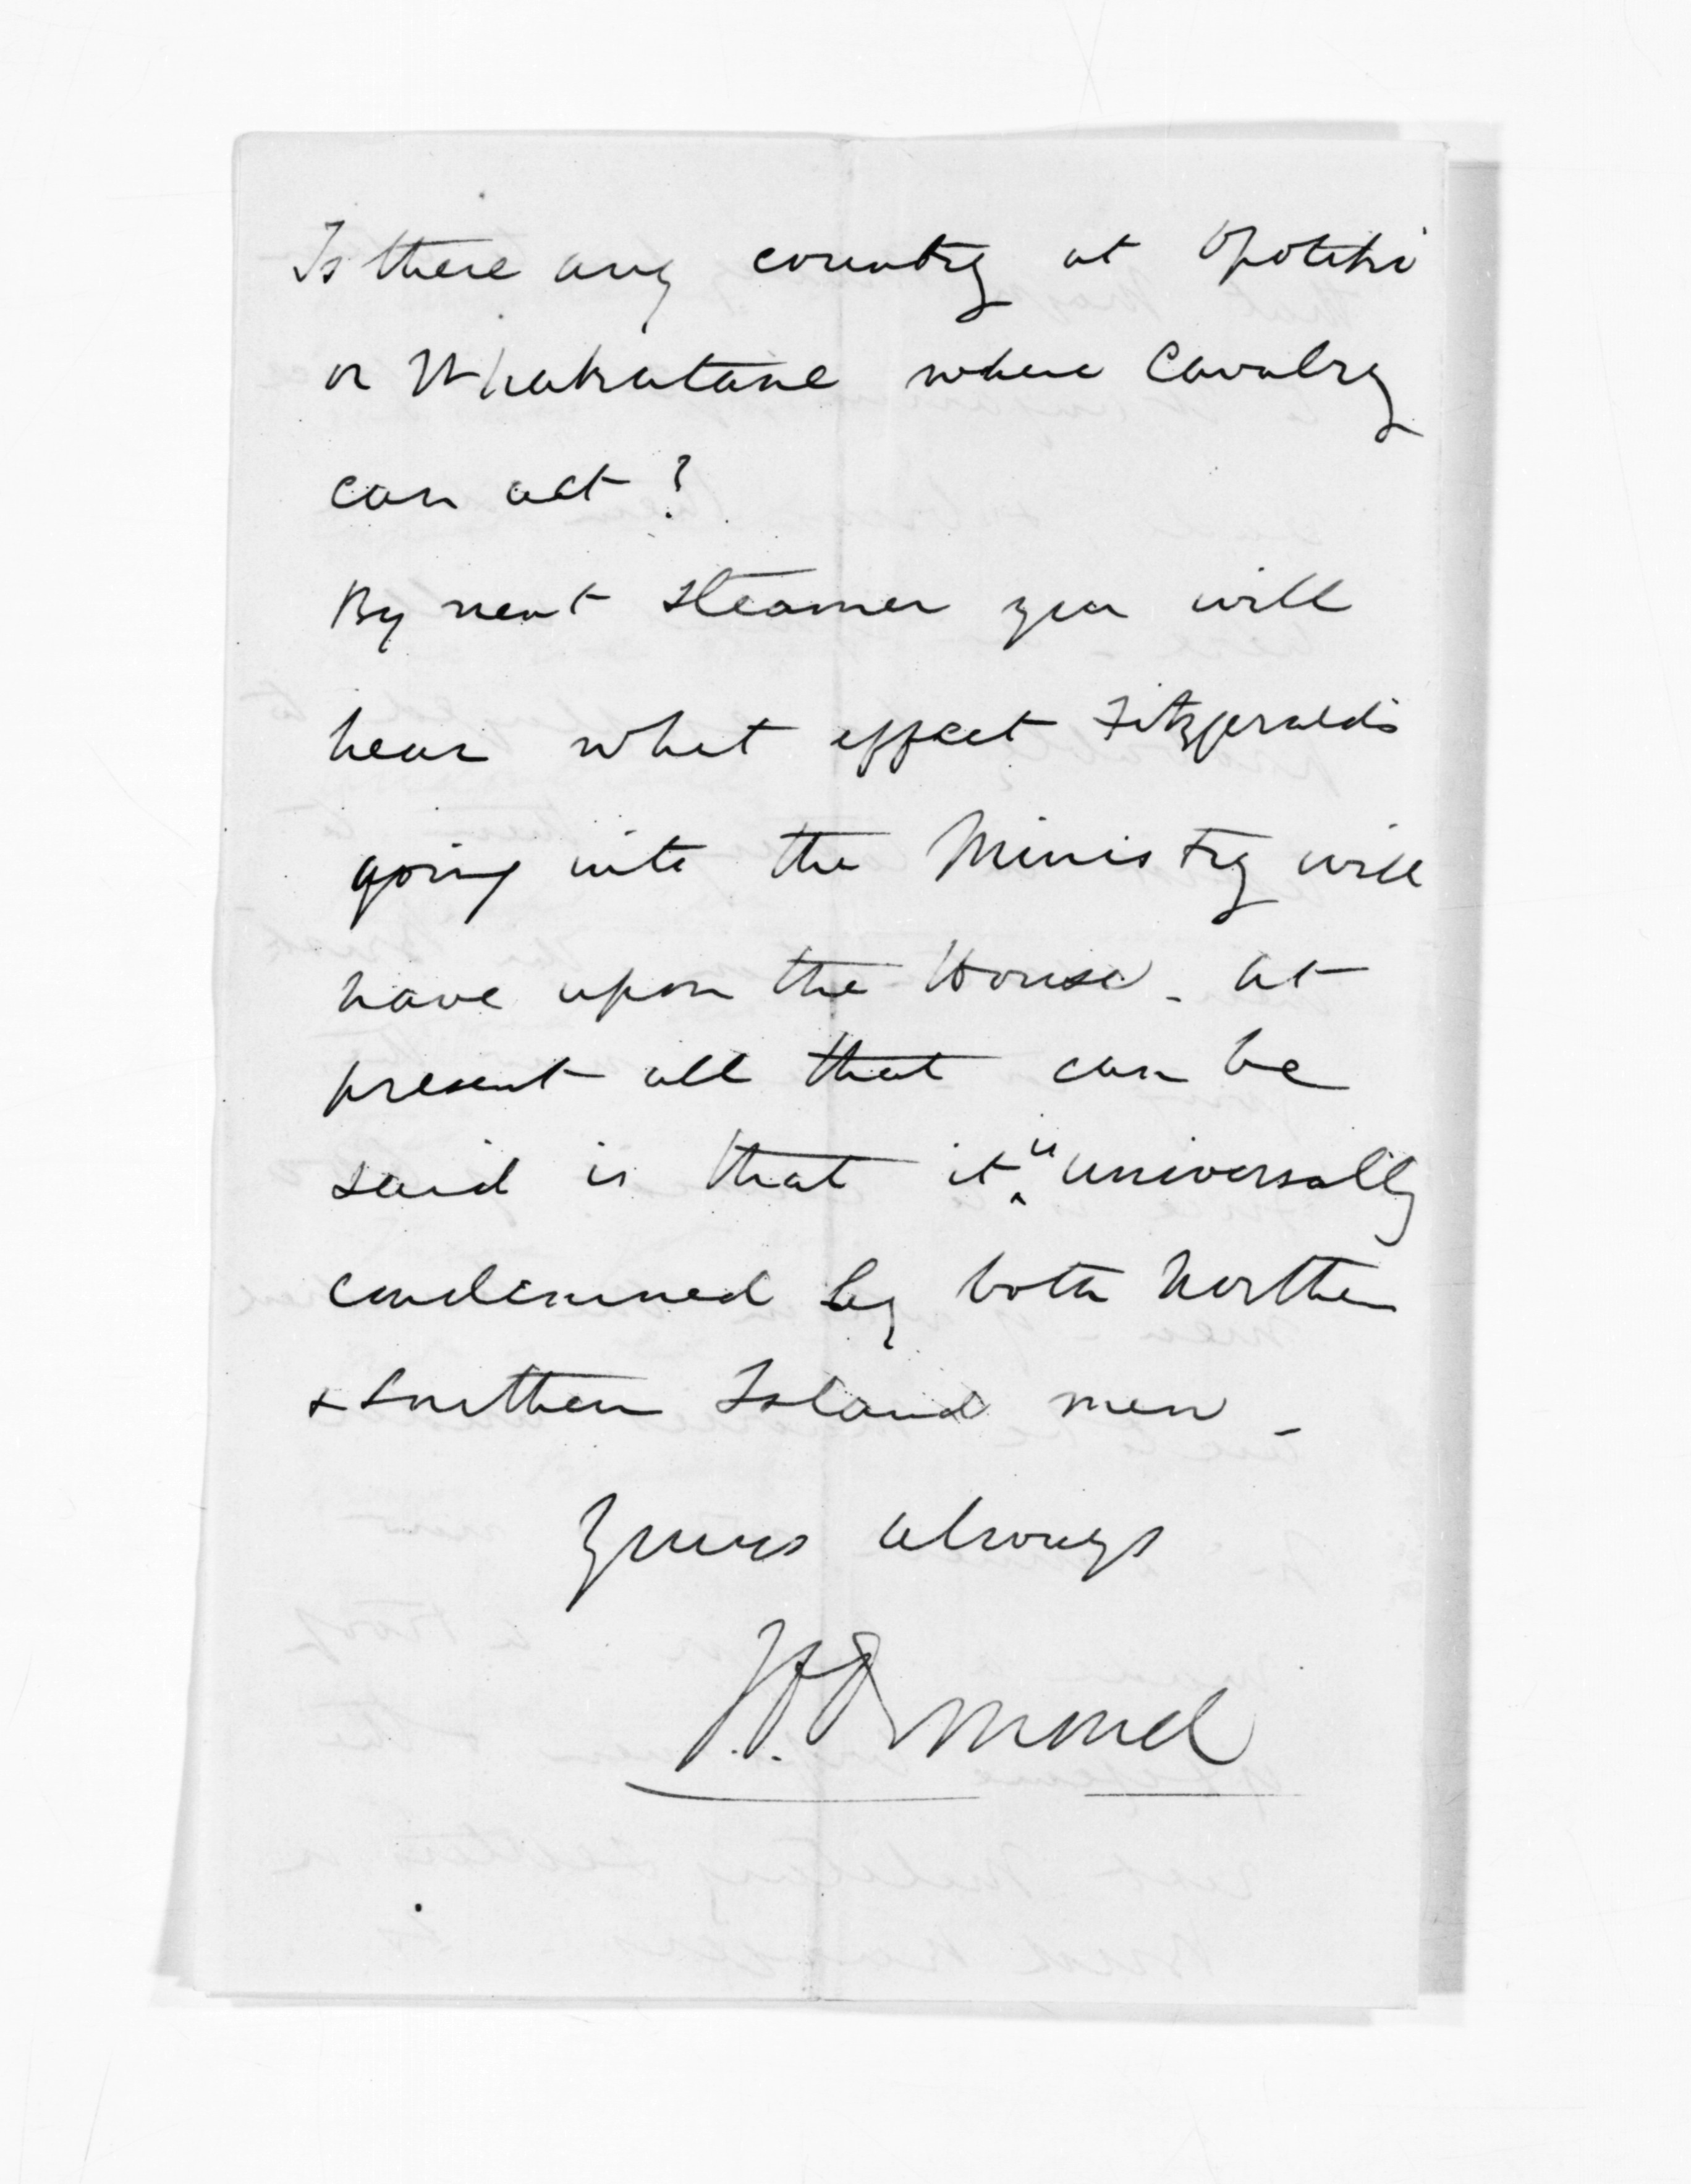 Is there any country at Opotiki
or Whakatane where Cavalry
can act?
By next steamer you will
hear what effect Fitzgerald's
going into the Ministry will
have upon the House - at
present all that can be
said is that it is universally
condemned by both Northern
& Southern Island men -
Yours always
J.D. Ormond